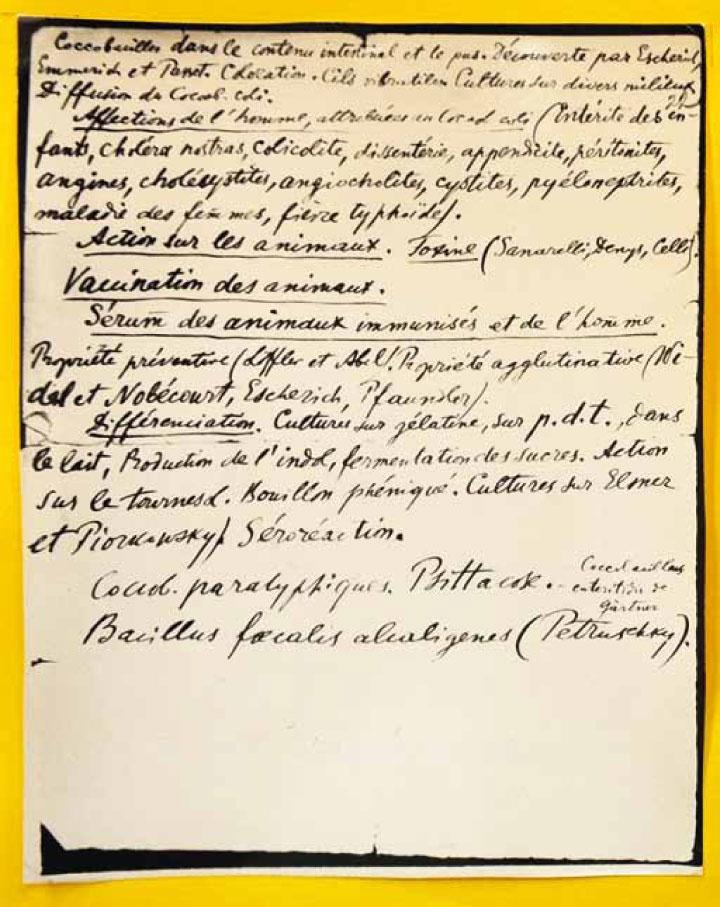 Coccobacilles dans le contenu intestinal et le pus. Découverte par Escherich,
Emmerich et Passet. Coloration. Cils vibratiles Cultures sur divers milieux
Diffusion du Cocob. coli.
Affections de l'homme, attribuées au Cocob coli (Entérite des en-
fants, choléra nostras, colicolite, dissenterie, appendicite, péritonites,
angines, cholésystites, angiocholites, cystites, pyélonephrites,
maladie des femmes, fièvre typhoïde).
Action sur les animaux. Toxine (Sanarelli, Denys, Celli).
Vaccination des animaux.
Sérum des animaux immunisés et de l'homme.
Propriété préventive (Löffler et Abel). Propriété agglutinative (Wi-
dal et Nobécourt, Escherich, Pfaundler).
Différenciation. Cultures sur gélatine, sur p.d.t., dans
le lait, Production de l'indol, fermentation des sucres. Action
sur le tournesol. Bouillon phéniqué. Cultures sur Elsner
et Piorkowsky). Séroréaction.
Cocob. paratyphiques. Psittacose. - Coccobacillus
enteritidis de
Gärtner
Bacillus fœcalis alcaligenes (Petruschky).